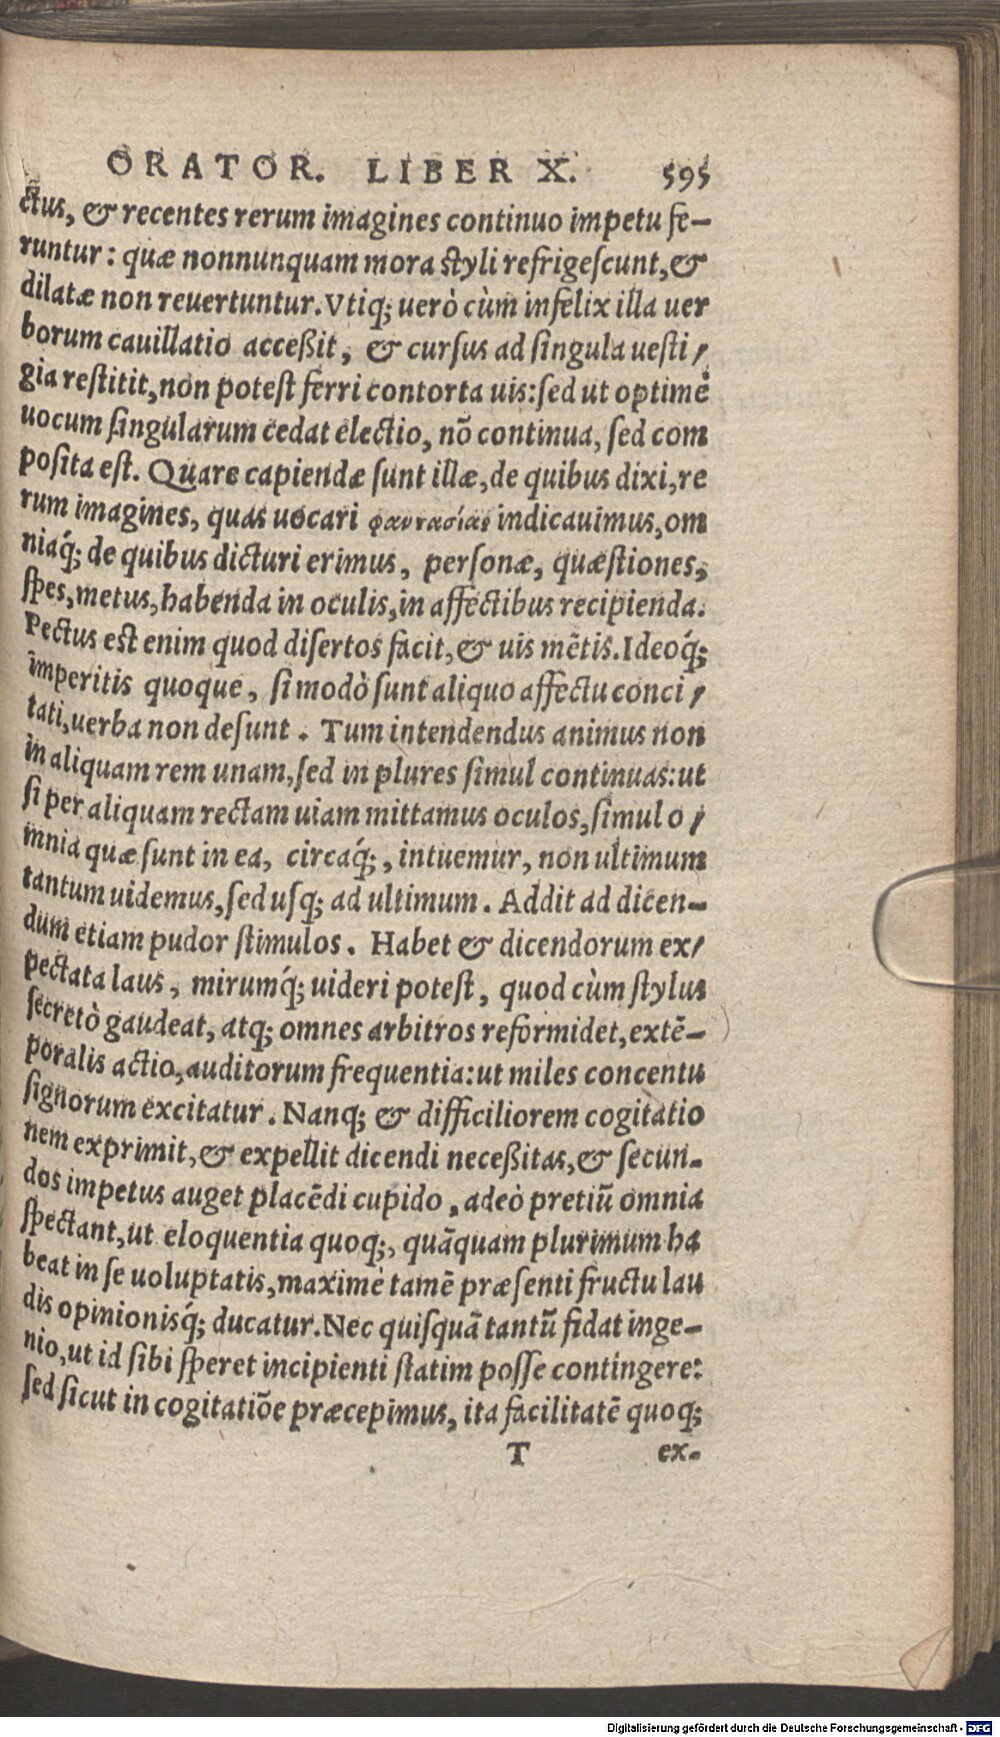 ORATOR. LIBER X. 595
ctus, & recentes rerum imagines continuo impetu fe-
runtur: quæ nonnunquam mora styli refrigeſcunt, &
dilatæ non reuertuntur. Vtiq; uerò cùm infelix illa uer
borum cauillatio acceßit, & curſus ad ſingula ueſti/
gia reſtitit, non poteſt ferri contorta uis: ſed ut optimè
uocum ſingularum cedat electio, nõ continua, ſed com
poſita eſt. Quare capiendæ ſunt illæ, de quibus dixi, re
rum imagines, quas uocari φαντασίας indicauimus, om
niaq́; de quibus dicturi erimus, perſonæ, quæſtiones,
ſpes, metus, habenda in oculis, in affectibus recipienda.
Pectus est enim quod diſertos facit, & uis mẽtis. Ideoq́;
imperitis quoque, ſi modò ſunt aliquo affectu conci/
tati, uerba non deſunt. Tum intendendus animus non
in aliquam rem unam, ſed in plures ſimul continuas: ut
ſi per aliquam rectam uiam mittamus oculos, ſimul o/
mnia quæ ſunt in ea, circaq́;, intuemur, non ultimum
tantum uidemus, ſed uſq; ad ultimum. Addit ad dicen-
dum etiam pudor ſtimulos. Habet & dicendorum ex/
pectata laus, mirumq́; uideri poteſt, quod cùm ſtylus
ſecretò gaudeat, atq; omnes arbitros reformidet, extẽ-
poralis actio, auditorum frequentia: ut miles concentu
ſignorum excitatur. Nanq; & difficiliorem cogitatio
nem exprimit, & expellit dicendi neceßitas, & ſecun-
dos impetus auget placẽdi cupido, adeò pretiũ omnia
ſpectant, ut eloquentia quoq;, quãquam plurimum ha
beat in ſe uoluptatis, maximè tamẽ præſenti fructu lau
dis opinionisq́; ducatur. Nec quiſquã tantũ fidat inge-
nio, ut id ſibi ſperet incipienti ſtatim poſſe contingere:
ſed ſicut in cogitatiõe præcepimus, ita facilitatẽ quoq;
T ex-
Digitalisierung gefördert durch die Deutsche Forschungsgemeinschaft - DFG